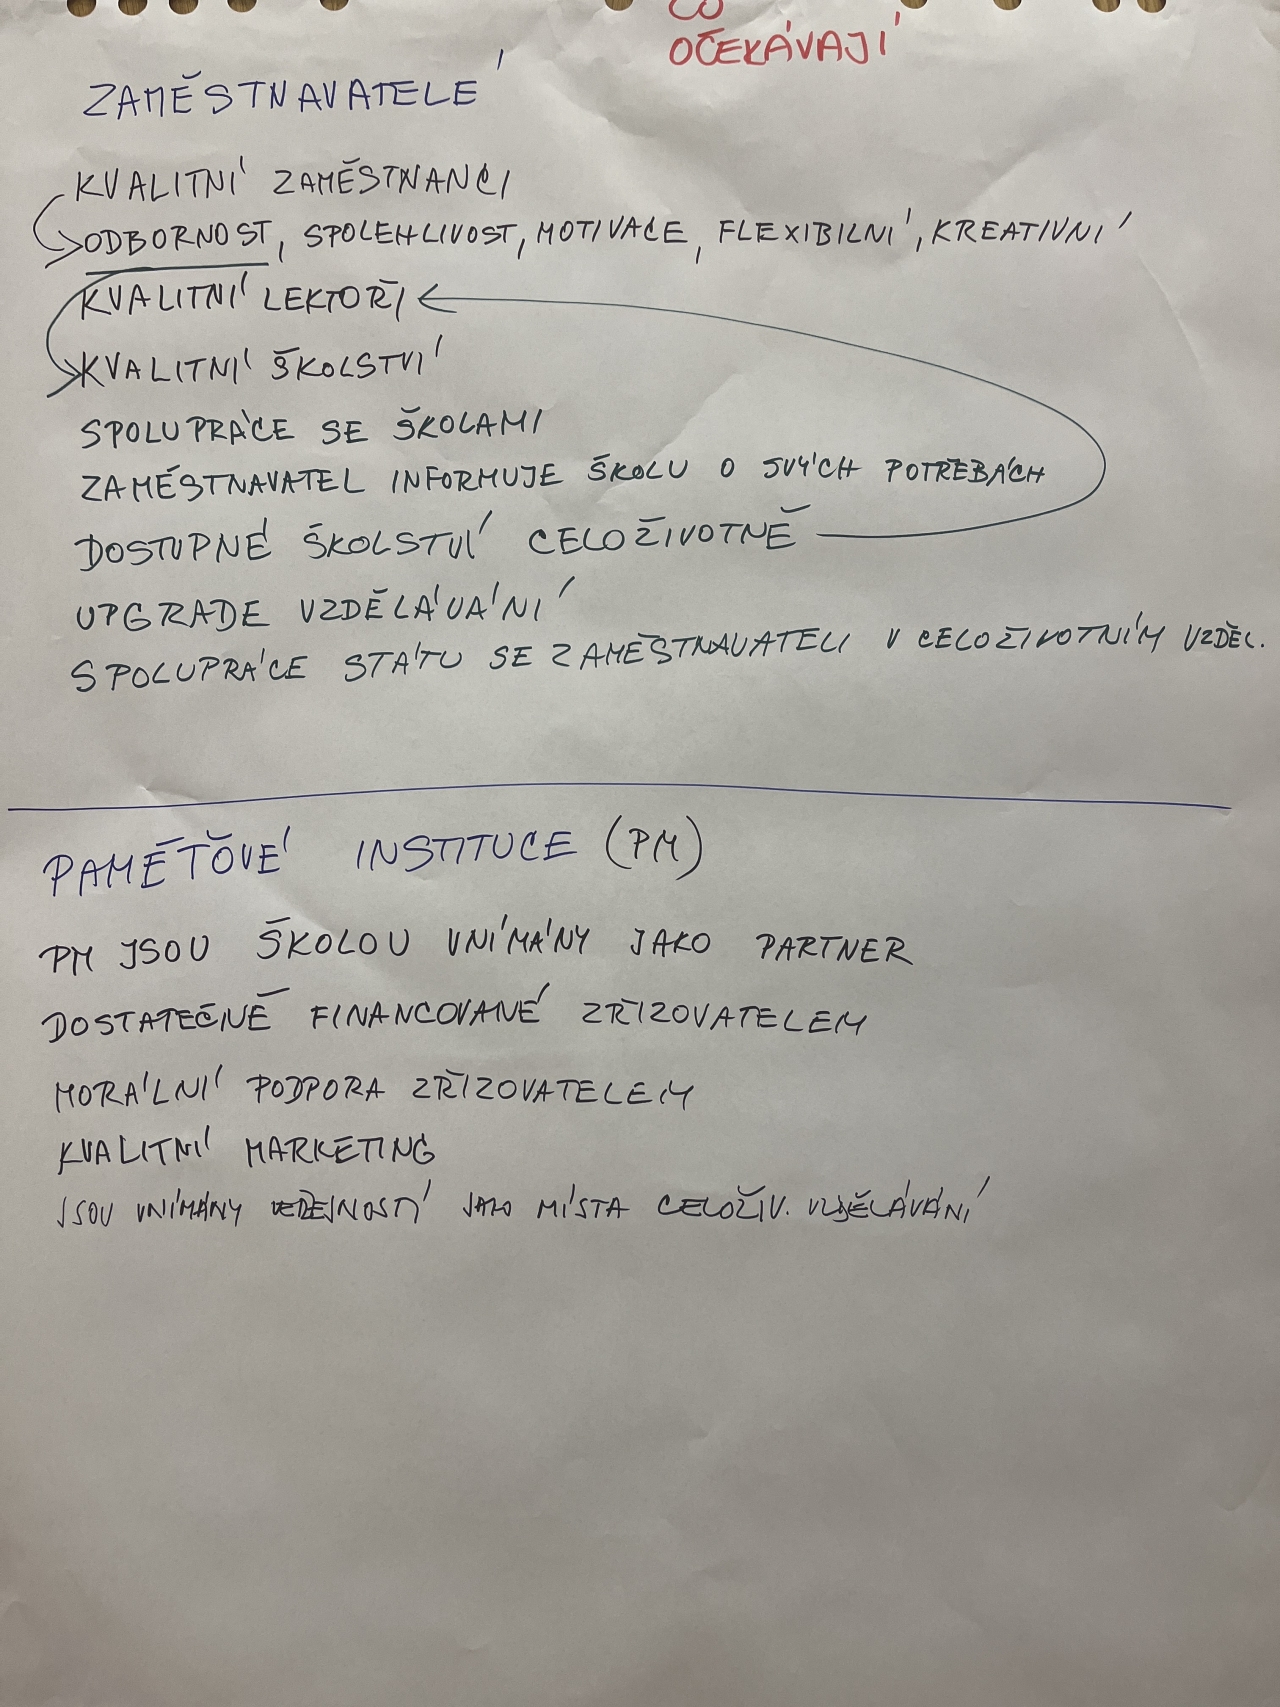 CO
OČEKÁVAJÍ
ZAMĚSTNAVATELÉ
KVALITNÍ ZAMĚSTNANCI
ODBORNOST, SPOLEHLIVOST, MOTIVACE, FLEXIBILNÍ, KREATIVNÍ
KVALITNÍ LEKTOŘI
KVALITNÍ ŠKOLSTVÍ
SPOLUPRÁCE SE ŠKOLAMI
ZAMĚSTNAVATEL INFORMUJE ŠKOLU O SVÝCH POTŘEBÁCH
DOSTUPNÉ ŠKOLSTVÍ CELOŽIVOTNĚ
UPGRADE VZDĚLÁVÁNÍ
SPOLUPRÁCE STÁTU SE ZAMĚSTNAVATELI V CELOŽIVOTNÍM VZDĚL.
PAMĚŤOVÉ INSTITUCE (PM)
PM JSOU ŠKOLOU VNÍMÁNY JAKO PARTNER
DOSTATEČNĚ FINANCOVANÉ ZŘIZOVATELEM
MORÁLNÍ PODPORA ZŘIZOVATELEM
KVALITNÍ MARKETING
JSOU VNÍMÁNY VEŘEJNOSTÍ JAKO MÍSTA CELOŽIV. VZDĚLÁVÁNÍ